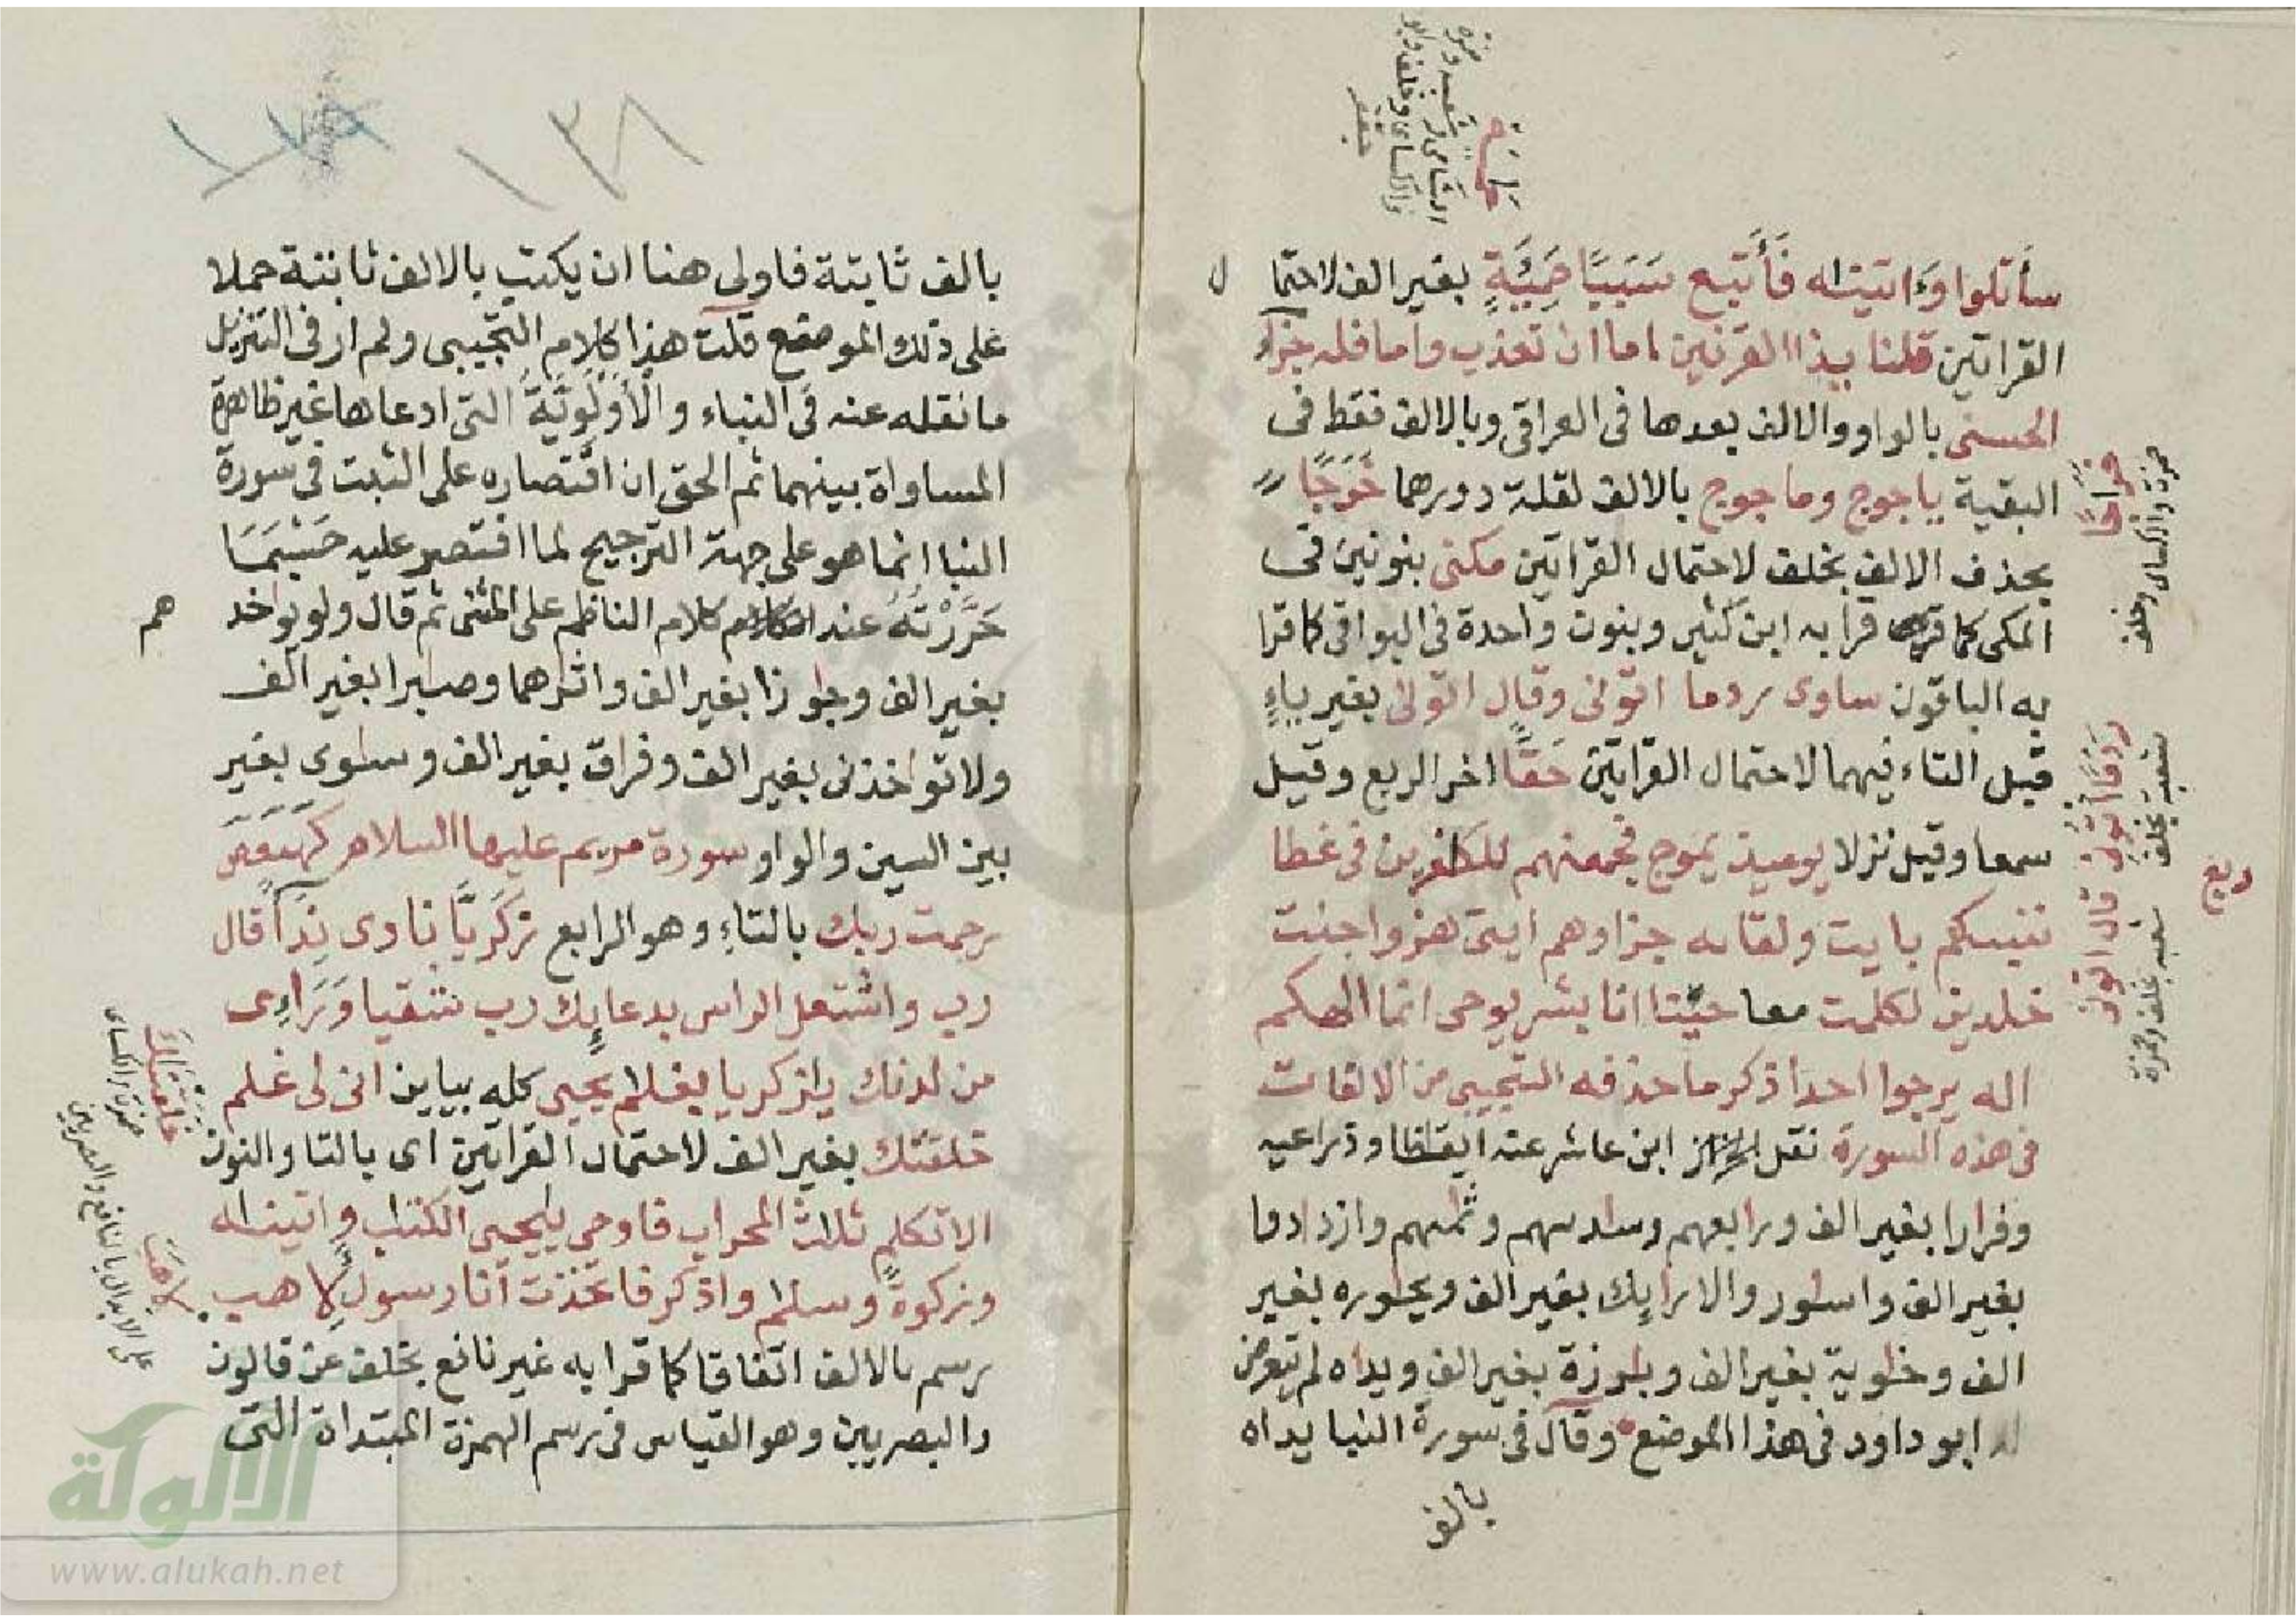 حَٰمِيَةٍ
الشامى وشعبة وحمزة
والكساى وخلف وابو
جعفر
سأتلوا وءاتينٰه فَأَتبع سَبَبًا حَمِئَةٍ بغير الف لاحتما
ل
القراتين قلنا يٰذا القرنين اما ان تعذب واما فله جزاو
الحسنى بالواو والالف بعدها فى العراقى وبالالف فقط فى
البقية ياجوج وماجوج بالالف لقلة دورهما خَرجًا
بحذف الالف بخلف لاحتمال القراتين مكنى بنونين فى
المكى كما قرا به ابن كثير وبنون واحدة فى البواقى كما قرا
به الباقون ساوى ردما اتونى وقال اتونى بغير ياءٍ
قبل التاء فيهما لاحتمال القراتين حَقًّا اخر الربع وقيل
سمعا وقيل نزلا يوميذ يموج فجمعنهم للكٰفرين فى غطا
ننبيكم بايت ولقائه جزاوهم ايتى هزوا جنت
خٰلدين لكلمت معا حيّتا انا بشر يوحى انما الهكم
اله يرجوا احدا ذكر ما حذفه التجيبى من الالفات
فى هذه السورة نقل ابن عاشر عنه ايقٰظا وذراعيه
وفرارا بغير الف ورابعهم وسادسهم وثمٰنهم وازدادوا
بغير الف واسٰور والارايك بغير الف ويحٰوره بغير
الف وخٰوية بغير الف وبٰرزة بغير الف ويداه لم يتعرض
له ابو داود فى هذا الموضع وقال فى سورة النبا يداه
بالف
خراجًا
حمزة والكساى وخلف
ردمًا أتونى قال اتونى
شعبة بخلف
شعبة بخلف وحمزة
ربع
١٣٨
بالف ثابتة فاولى هنا ان يكتب بالالف ثابتة حملا
على ذلك الموضع قلت هذا كلام التجيبى ولم ار فى التنزيل
ما نقله عنه فى النباء والأَوْلَوِيَّةُ التى ادعاها غير ظاهرة
المساواة بينهما ثم الحق ان اقتصاره على الثبت فى سورة
النبا انما هو على جهة الترجيح لما اقتصر عليه حَسْبَمَا
حَرَّرْتُهُ عند كلام الناظم على المثنى ثم قال ولو يواخذ
هم
بغير الف وجٰوزا بغير الف واثٰرهما وصابرا بغير الف
ولا تواخذنى بغير الف وفراق بغير الف وسٰوى بغير
بين السين والواو سورة مريم عليها السلام كهيعص
رحمت ربك بالتاءِ وهو الرابع زَكَرِيَّا نادى نِدَآءً قال
رب واشتعل الراس بدعايك رب شقيا وَرَاءِى
من لدنك يٰزكريا بغلٰم يحيى كله بيايين انى لى غلٰم
خلقتك بغير الف لاحتمال القراتين اى بالتا والنون
الاتكلم ثلٰث المحراب فاوحى يٰيحيى الكتٰب واتينٰه
وزكوة وسلٰم واذكر فاتخذت انا رسول لِاَهب
رسم بالالف اتفاقا كما قرا به غير نافع بخلف عن قالون
والبصريين وهو القياس فى رسم الهمزة المبتداة التى
خَلَقْنٰكَ
حمزة والكساى
لِاَهَبَ
على الابدال يا لنافع والبصريين
الألوكة
www.alukah.net